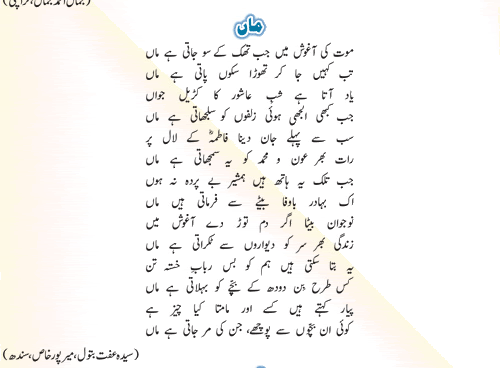 (جمال احمد جمال، کراچی)
ماں
موت کی آغوش میں جب تھک کے سو جاتی ہے ماں
تب کہیں جا کر تھوڑا سکوں پاتی ہے ماں
یاد آتا ہے شب عاشور کا کڑیل جواں
جب کبھی الجھی ہوئی زلفوں کو سلجھاتی ہے ماں
سب سے پہلے جان دینا فاطمہؓ کے لال پر
رات بھر عون و محمد کو یہ سمجھاتی ہے ماں
جب تلک یہ ہاتھ ہیں ہمشیر بے پردہ نہ ہوں
اک بہادر باوفا بیٹے سے فرماتی ہیں ماں
نوجوان بیٹا اگر دم توڑ دے آغوش میں
زندگی بھر سر کو دیواروں سے ٹکراتی ہے ماں
یہ بتا سکتی ہیں ہم کو بس رباب خستہ تن
کس طرح بن دودھ کے بچے کو بہلاتی ہے ماں
پیار کہتے ہیں کسے اور مامتا کیا چیز ہے
کوئی ان بچوں سے پوچھے، جن کی مر جاتی ہے ماں
(سیدہ عفت بتول، میرپورخاص، سندھ)